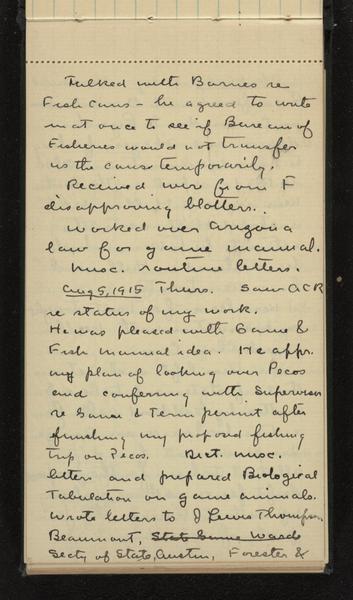 Talked with Barnes re
Fish Cans – he agreed to write
in at once to see if Bureau of
Fisheries would not transfer
us the cans temporarily.
Received wire from F
disapproving blotters.
Worked over Arizona
law for game manual.
Misc. routine letters.
Aug 5, 1915 Thurs. Saw ACR
re status of my work.
He was pleased with Game &
Fish manual idea. He appr.
my plan of looking over Pecos
and conferring with Supervisor
re Game & Term permit after
finishing my proposed fishing
trip on Pecos. Dict. misc.
letters and prepared Biological
Tabulation on game animals.
Wrote letters to J Lewis Thompson,
Beaumont, State Game Ward
Secty of State, Austin, Forester &